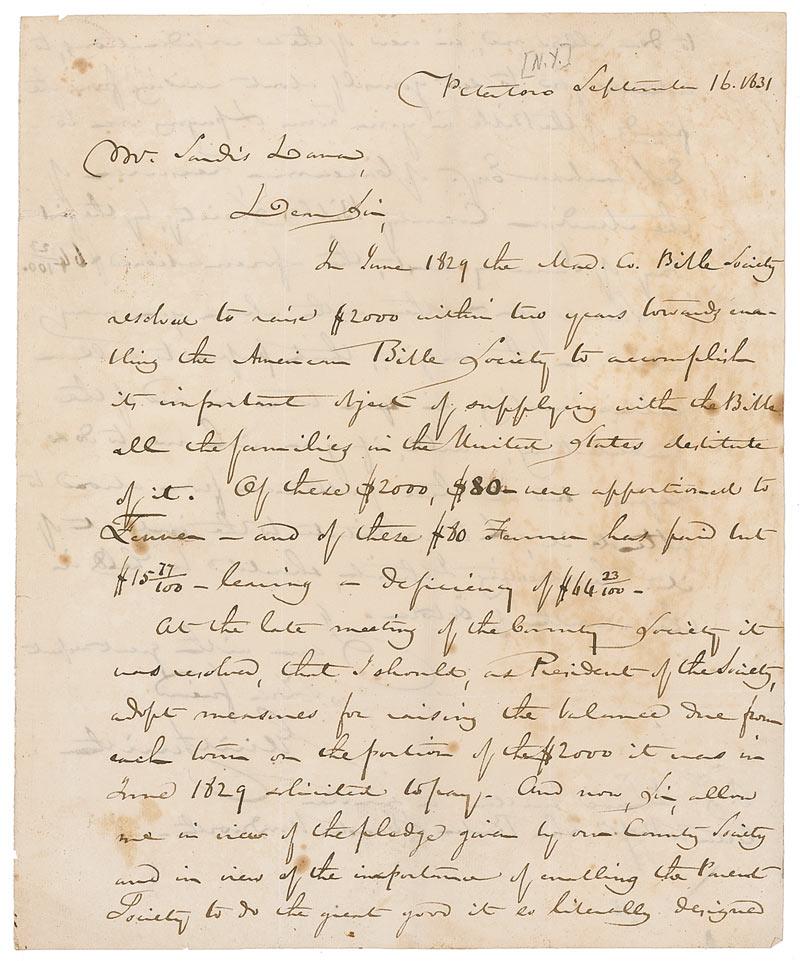 [N.Y.]
Peterboro September 16. 1831
Mr. Sardis Dana,
Dear Sir,
In June 1829 the Mad. Co. Bible Society
resolved to raise $2000 within two years towards ena-
bling the American Bible Society to accomplish
its important object of supplying with the Bible
all the families in the United States destitute
of it. Of these $2000, $80 - were apportioned to
Fenner - and of these $80 Fenner has paid but
$15 77/100 - leaving a deficiency of $64 23/100 -
At the late meeting of the County Society it
was resolved, that I should, as President of the Society,
adopt measures for raising the balance due from
each town on the portion of the $2000 it was in
June 1829 solicited to pay. And now, Sir, allow
me in view of the pledge given by our County Society
and in view of the importance of enabling the Parent
Society to do the great good it so liberally designed